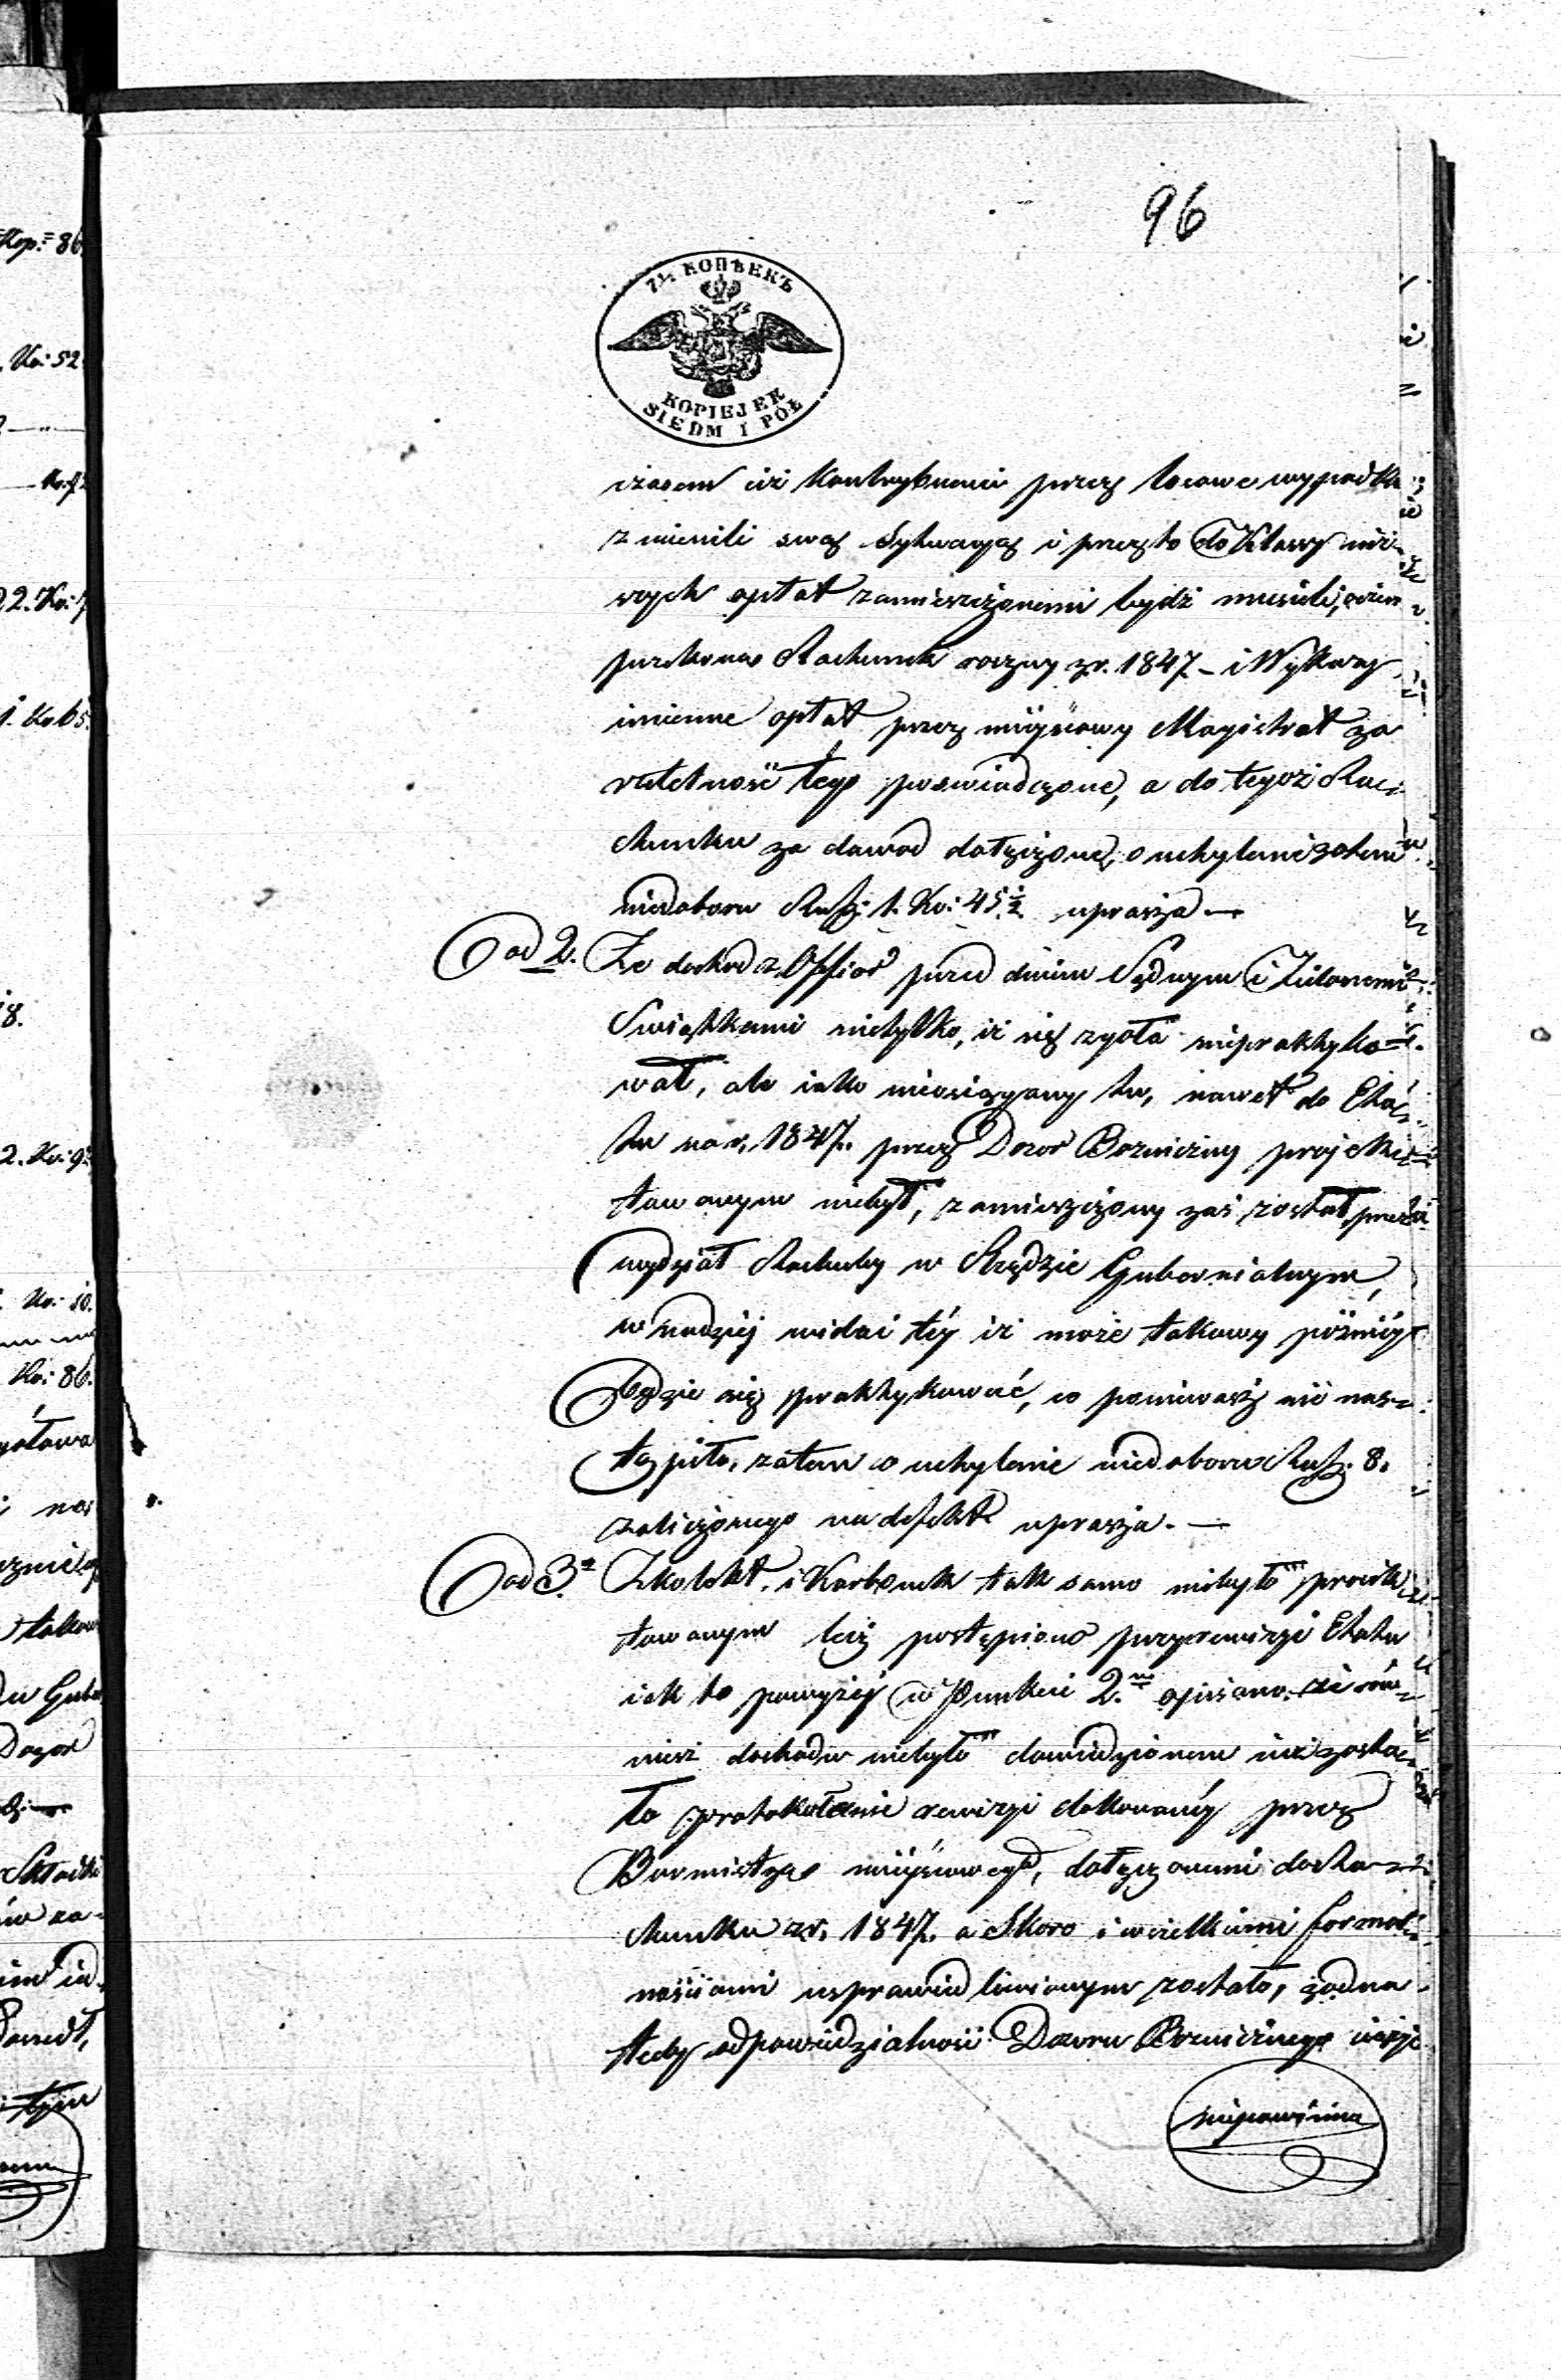 96
7½ КОПѢЕКЪ
KOPIEJEK
SIEDM I PÓŁ
czasem iż kontrybuenci przez losowe wypadki
zmienili swą Sytuacyą i przez to do Klassy niż
szych opłat zamieszczonemi bydź musieli, o czem
przekona Rachunek roczny z r. 1847 – i Wykazy
imienne opłat przez mieyscowy Magistrat za
rzetelność tego poswiadczone, a do tegoż Ra-
chunku za dowod dołączone, o uchylenie zatem
niedoboru Rubs: 1. Ko: 45½ uprasza —
ad 2. Ze dochod z Offiar przed dniem Sądnym i Zielonemi
Swiątkami nietylko, iż się zgoła niepraktyko-
wał, ale iako nieosiągany tu, nawet do Eta-
tu na r. 1847. przez Dozor Bozniczny projek-
towanym niebył, zamieszczony zaś został przez
wydział Rachuby w Rządzie Gubernialnym,
w nadziej widać téy iż może takowy pózniéy
będzie się praktykować, co ponieważ nie nas-
tąpiło, zatem o uchylenie niedoboru Rubs. 8.
zaliczonego na defekt uprasza. —
ad 3. Z kolekt. i Karbonek tak samo niebyło proiek-
towanym lecz postąpiono przy rewizyi Etatu
iak to powyżéj w Punkcie 2. opisano. że rów-
nież dochodu niebyło dowiedzionem iuż zosta-
ło protokołem rewizyi dokonanéy przez
Burmistrza mieyscowego, dołączonemi do Ra-
chunku z r. 1847. a Skoro i wszelkiemi formal-
nościami usprawiedliwionym zostało, żadna
tedy odpowiedzialność Dozoru Bozniczego
niepowinna
Kop. 86
Ko: 52
2. Ko:
1. Ko 65
8.
2. Ko: 9
Ko: 10.
Ko: 86.
Dozor